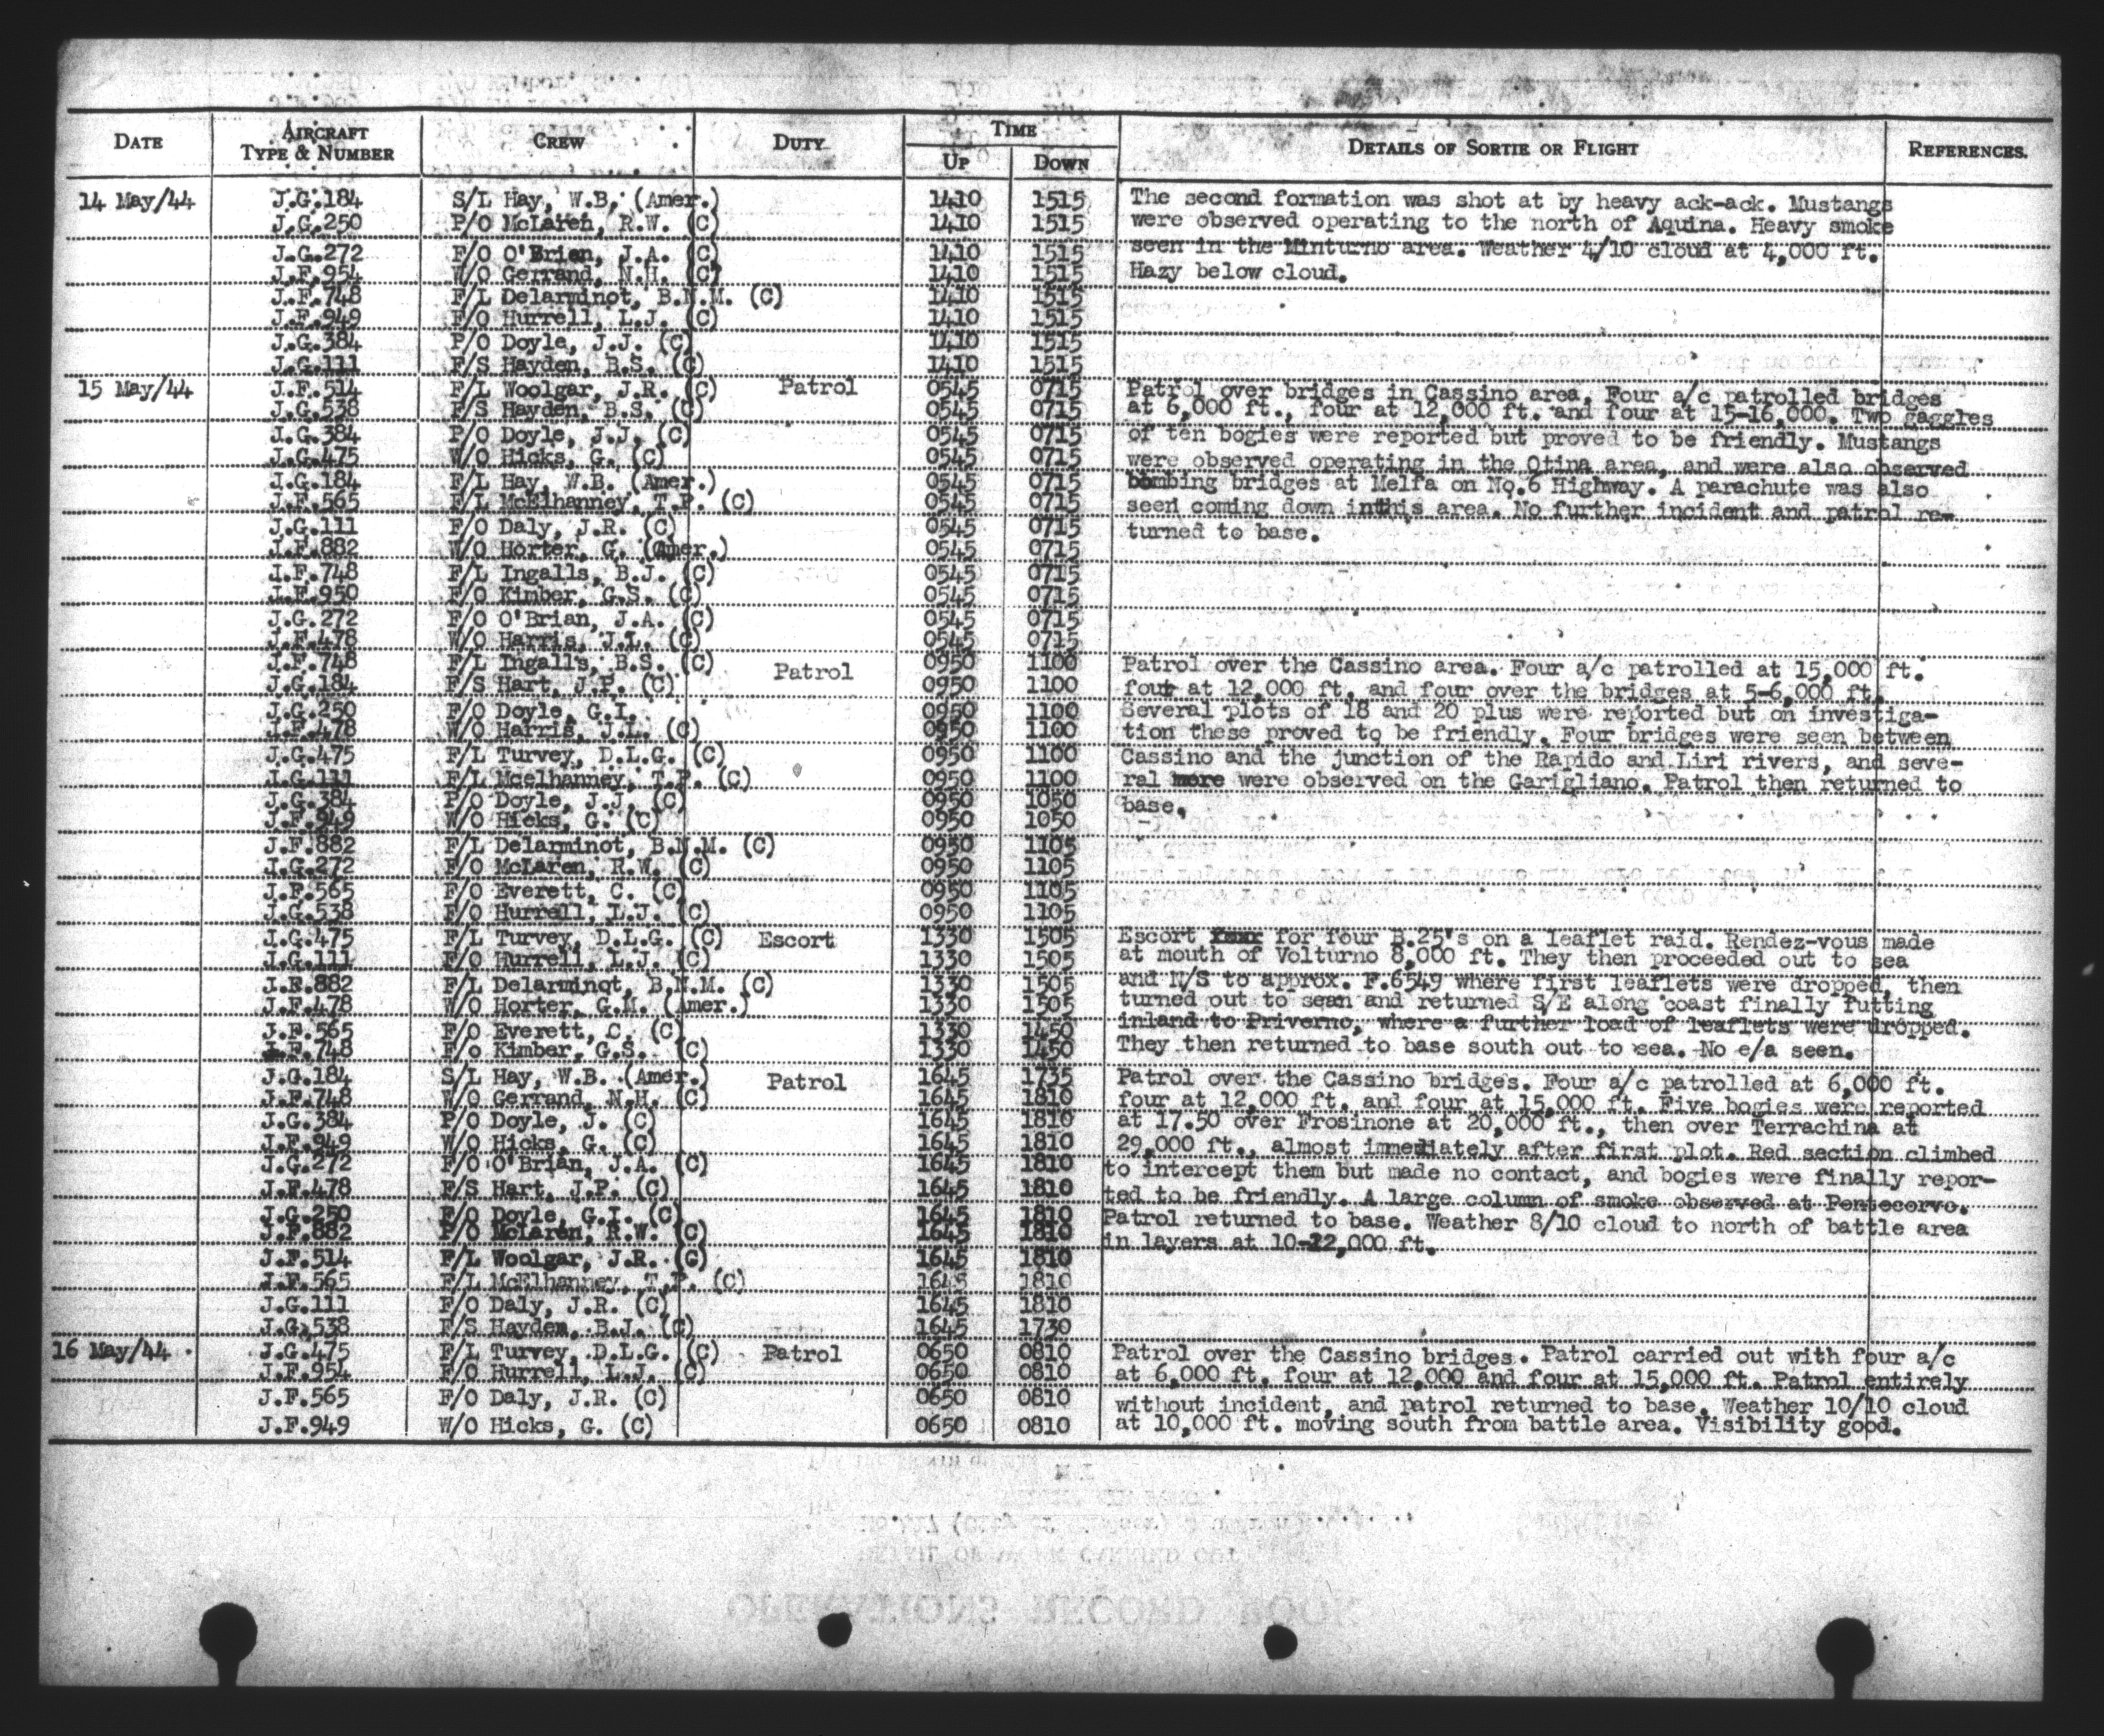 DATE AIRCRAFT TYPE & NUMBER CREW DUTY TIME UP DOWN DETAILS OF SORTIE OR FLIGHT REFERENCES.
14 May/44 J.G.184 S/L Hay, W.B. (Amer.) 1410 1515 The second formation was shot at by heavy ack-ack. Mustangs
J.G.250 P/O McLaren, R.W. (C) 1410 1515 were observed operating to the north of Aquina. Heavy smoke
J.G.272 F/O O'Brien, J.A. (C) 1410 1515 seen in the Minturno area. Weather 4/10 cloud at 4,000 ft.
J.F.954 W/O Gerrand, N.H. (C) 1410 1515 Hazy below cloud.
J.F.748 F/L Delarminot, B.N.M. (C) 1410 1515
J.F.949 F/O Hurrell, L.J. (C) 1410 1515
J.G.384 P/O Doyle, J.J. (C) 1410 1515
J.G.111 F/S Hayden, B.S. (C) 1410 1515
15 May/44 J.F.514 F/L Woolgar, J.R. (C) Patrol 0545 0715 Patrol over bridges in Cassino area. Four a/c patrolled bridges
J.G.538 F/S Hayden, B.S. (C) 0545 0715 at 6,000 ft., four at 12,000 ft. and four at 15-16,000. Two gaggles
J.G.384 P/O Doyle, J.J. (C) 0545 0715 of ten bogies were reported but proved to be friendly. Mustangs
J.G.475 W/O Hicks, G. (C) 0545 0715 were observed operating in the Otina area, and were also observed
J.G.184 F/L Hay, W.B. (Amer.) 0545 0715 bombing bridges at Melfa on No.6 Highway. A parachute was also
J.F.565 F/L McElhanney, T.P. (C) 0545 0715 seen coming down inthis area. No further incident and patrol re-
J.G.111 F/O Daly, J.R. (C) 0545 0715 turned to base.
J.F.882 W/O Horter, G. (Amer.) 0545 0715
J.F.748 F/L Ingalls, B.J. (C) 0545 0715
J.F.950 F/O Kimber, G.S. (C) 0545 0715
J.G.272 F/O O'Brian, J.A. (C) 0545 0715
J.F.478 W/O Harris, J.L. (C) 0545 0715
J.F.748 F/L Ingalls, B.S. (C) Patrol 0950 1100 Patrol over the Cassino area. Four a/c patrolled at 15,000 ft.
J.G.184 F/S Hart, J.P. (C) 0950 1100 four at 12,000 ft. and four over the bridges at 5-6,000 ft.
J.G.250 F/O Doyle, G.I. 0950 1100 Several plots of 18 and 20 plus were reported but on investiga-
J.F.478 W/O Harris, J.L. (C) 0950 1100 tion these proved to be friendly. Four bridges were seen between
J.G.475 F/L Turvey, D.L.G. (C) 0950 1100 Cassino and the junction of the Rapido and Liri rivers, and seve-
J.G.111 F/L Mcelhanney, T.P. (C) 0950 1100 ral more were observed on the Garigliano. Patrol then returned to
J.G.384 P/O Doyle, J.J. (C) 0950 1050 base.
J.F.949 W/O Hicks, G. (C) 0950 1050
J.F.882 F/L Delarminot, B.N.M. (C) 0950 1105
J.G.272 F/O McLaren, R.W. (C) 0950 1105
J.F.565 F/O Everett, C. (C) 0950 1105
J.G.538 F/O Hurrell, L.J. (C) 0950 1105
J.G.475 F/L Turvey, D.L.G. (C) Escort 1330 1505 Escort for four B.25's on a leaflet raid. Rendez-vous made
J.G.111 F/O Hurrell, L.J. (C) 1330 1505 at mouth of Volturno 8,000 ft. They then proceeded out to sea
J.F.882 F/L Delarminot, B.N.M. (C) 1330 1505 and N/S to approx. F.6549 where first leaflets were dropped, then
J.F.478 W/O Horter, G.M. (Amer.) 1330 1505 turned out to sean and returned S/E along coast finally futting
J.F.565 F/O Everett, C. (C) 1330 1450 inland to Priverno, where a further load of leaflets were dropped.
J.F.748 F/o Kimber, G.S. (C) 1330 1450 They then returned to base south out to sea. No e/a seen.
J.G.184 S/L Hay, W.B. (Amer.) Patrol 1645 1735 Patrol over the Cassino bridges. Four a/c patrolled at 6,000 ft.
J.F.748 W/O Gerrand, N.H. (C) 1645 1810 four at 12,000 ft. and four at 15,000 ft. Five bogies were reported
J.G.384 P/O Doyle, J. (C) 1645 1810 at 17.50 over Frosinone at 20,000 ft., then over Terrachina at
J.F.949 W/O Hicks, G. (C) 1645 1810 29,000 ft., almost immediately after first plot. Red section climbed
J.G.272 F/O O'Brian, J.A. (C) 1645 1810 to intercept them but made no contact, and bogies were finally repor-
J.F.478 F/S Hart, J.P. (C) 1645 1810 ted to be friendly. A large column of smoke observed at Pentecorvo.
J.G.250 F/O Doyle, G.I. (C) 1645 1810 Patrol returned to base. Weather 8/10 cloud to north of battle area
J.F.882 P/O McLaren, R.W. (C) 1645 1810 in layers at 10-12,000 ft.
J.F.514 F/L Woolgar, J.R. (C) 1645 1810
J.F.565 F/L McElhanney, T.P. (C) 1645 1810
J.G.111 F/O Daly, J.R. (C) 1645 1810
J.G.538 F/S Hayden, B.J. (C) 1645 1730
16 May/44 J.G.475 F/L Turvey, D.L.G. (C) Patrol 0650 0810 Patrol over the Cassino bridges. Patrol carried out with four a/c
J.F.954 F/O Hurrell, L.J. (C) 0650 0810 at 6,000 ft. four at 12,000 and four at 15,000 ft. Patrol entirely
J.F.565 F/O Daly, J.R. (C) 0650 0810 without incident, and patrol returned to base. Weather 10/10 cloud
J.F.949 W/O Hicks, G. (C) 0650 0810 at 10,000 ft. moving south from battle area. Visibility good.